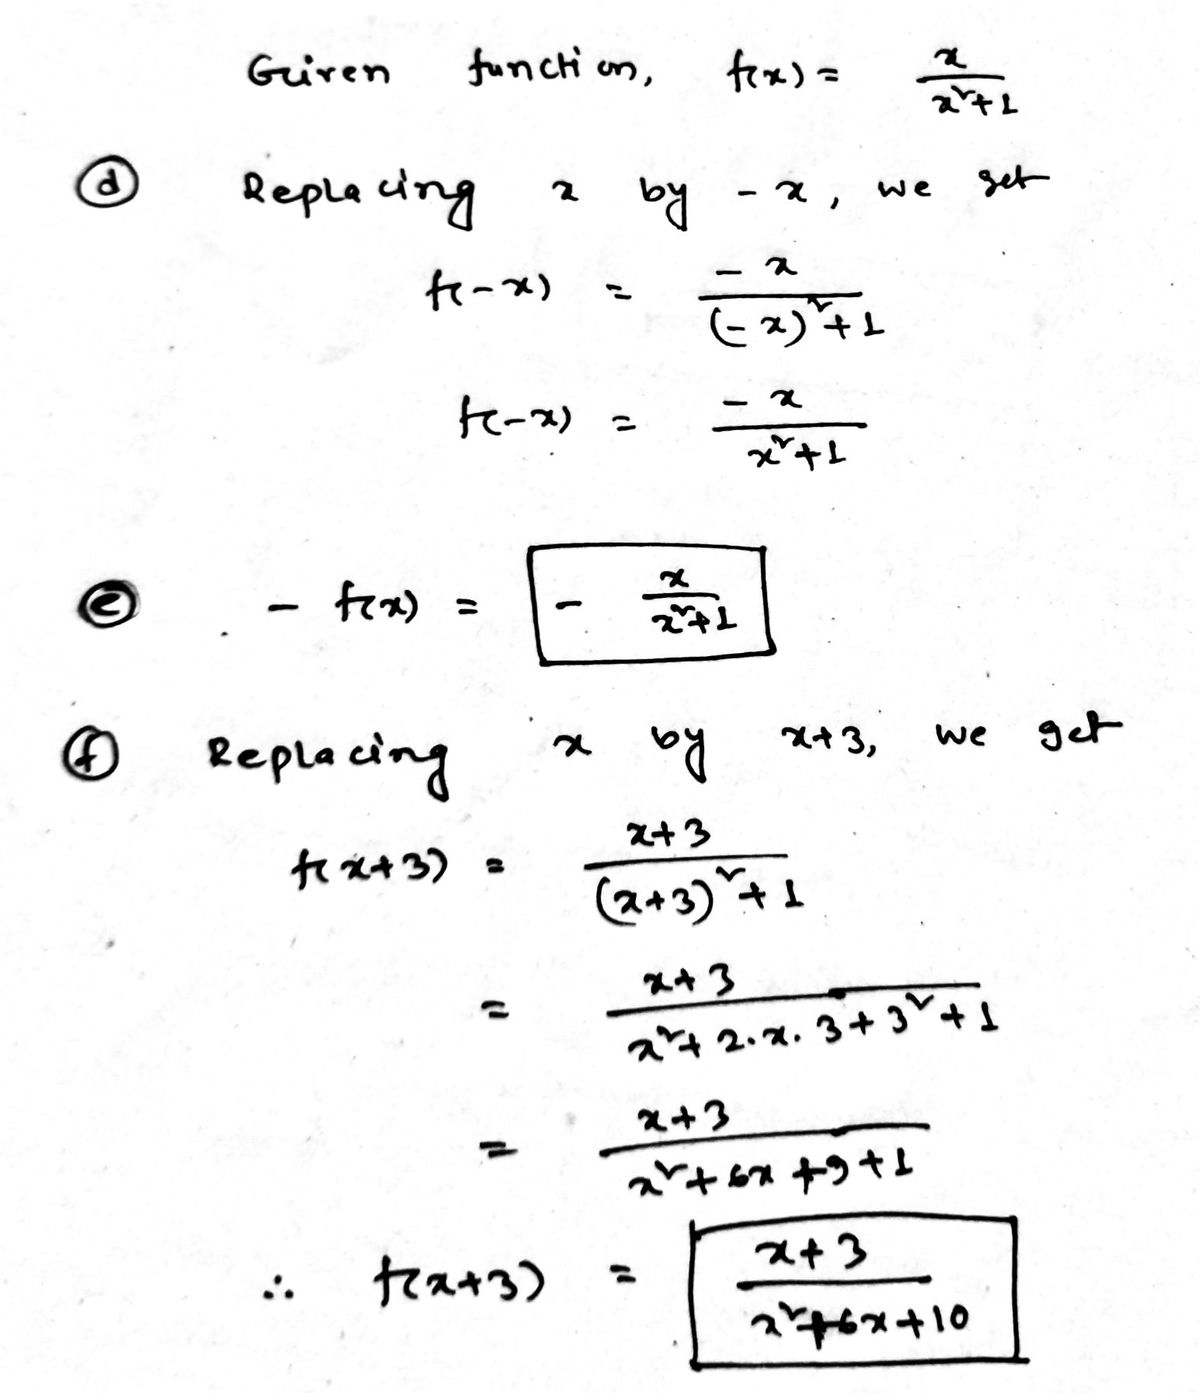 Given function, f(x) = x/(x²+1)
(d) Replacing x by -x, we get
f(-x) = -x/((-x)²+1)
f(-x) = -x/(x²+1)
(e) - f(x) = - x/(x²+1)
(f) Replacing x by x+3, we get
f(x+3) = (x+3)/((x+3)²+1)
= (x+3)/(x²+2.x.3+3²+1)
= (x+3)/(x²+6x+9+1)
∴ f(x+3) = (x+3)/(x²+6x+10)